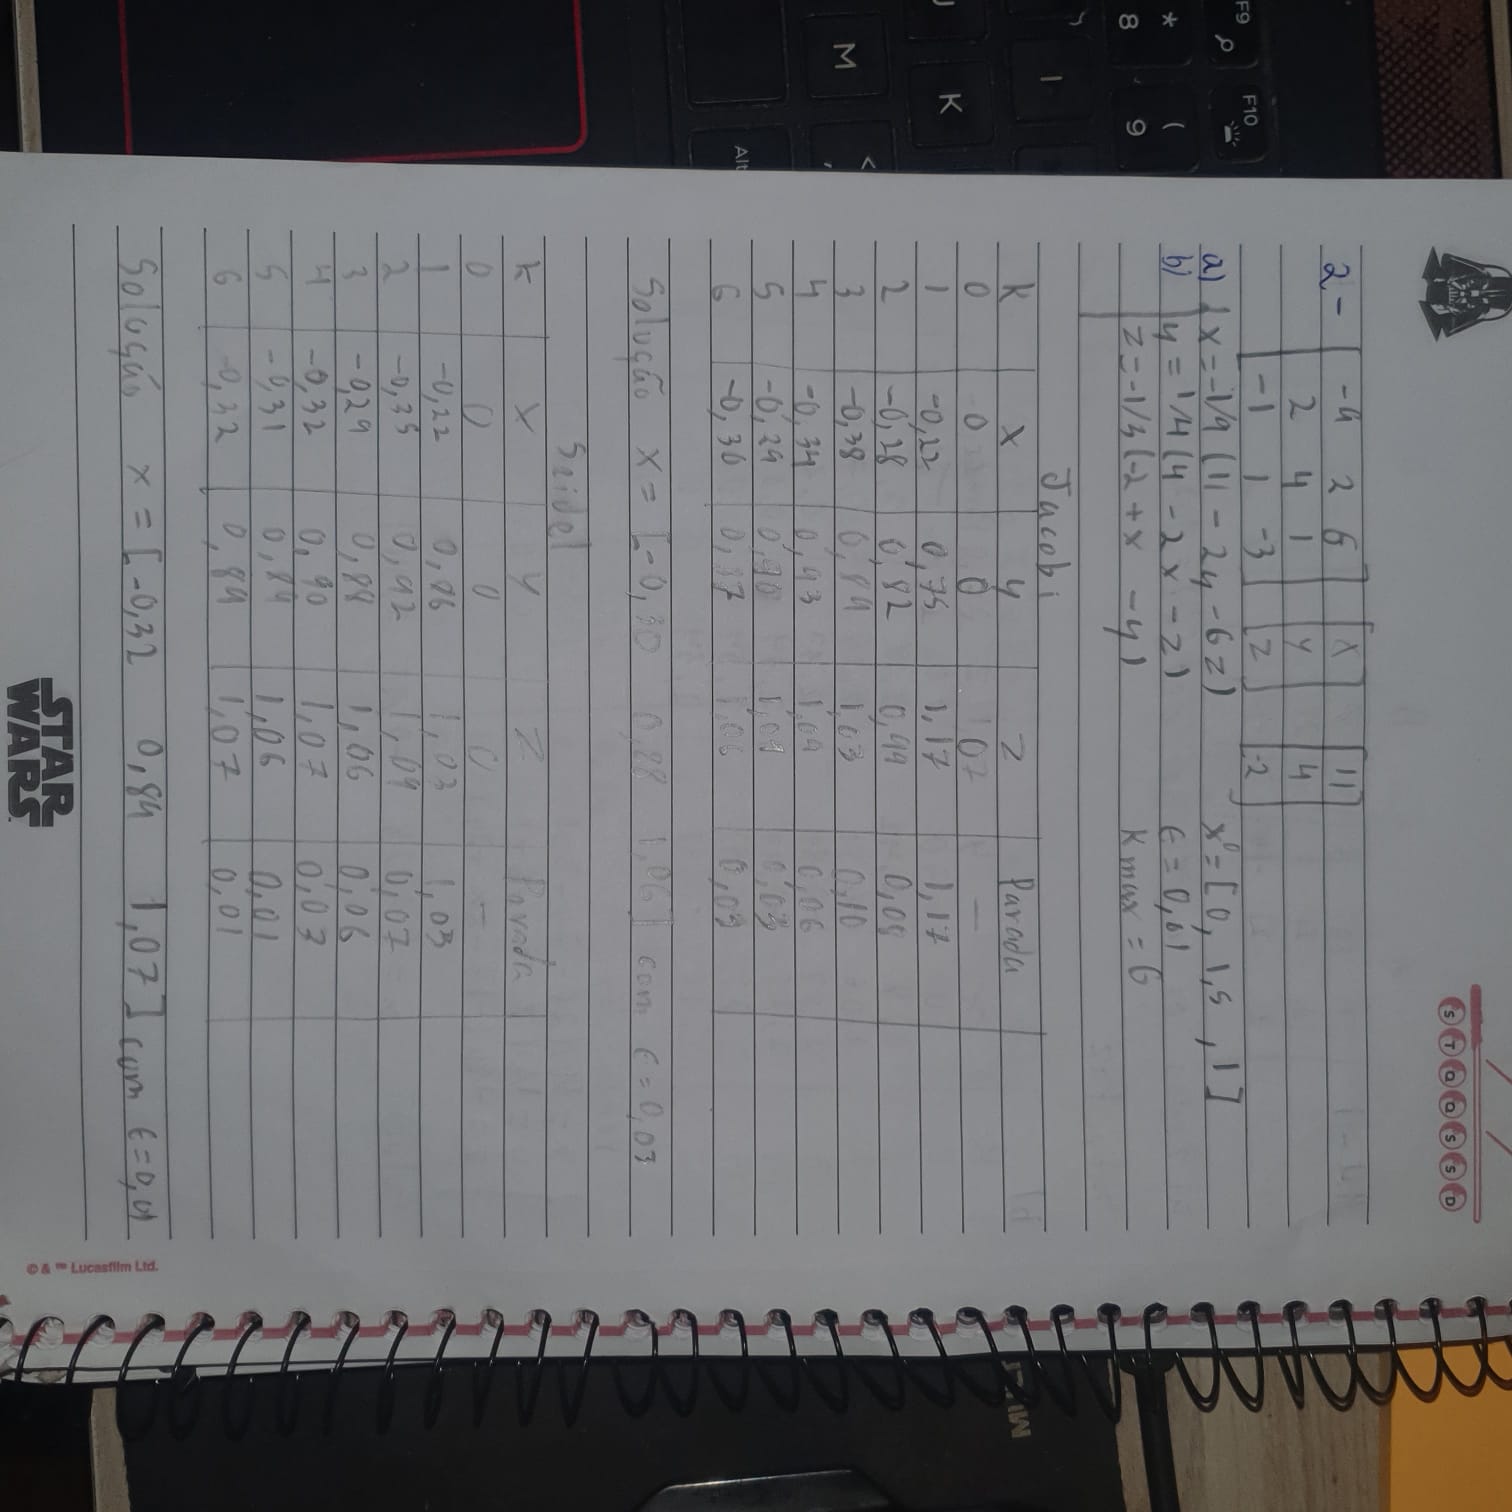 S T Q Q S S D
2- [-9 2 6] [x] [11]
[2 4 1] [y] [4]
[-1 1 -3] [z] [-2]
a) { x = -1/9 (11 - 2y - 6z) x⁰ = [0, 1,5, 1]
b) y = 1/4 (4 - 2x - z) ε = 0,01
z = -1/3 (-2 + x - y) K max = 6
Jacobi
K x y z Parada
0 0 0 —
1 -0,22 0,75 1,17 1,17
2 -0,28 0,82 0,99
3 -0,28 0,89 1,03 0,10
4 -0,34 0,93 1,04 0,06
5 -0,29 0,90 1,09 0,03
6 -0,30 0,87 1,06 0,03
Solução x = [-0,30 0,88 1,06] com ε = 0,03
Seidel
K x y z Parada
0 0 0 0 —
1 -0,22 0,86 1,03 1,03
2 -0,35 0,92 1,09 0,07
3 -0,29 0,88 1,06 0,06
4 -0,32 0,90 1,07 0,03
5 -0,31 0,89 1,06 0,01
6 -0,32 0,89 1,07 0,01
Solução x = [-0,32 0,89 1,07] com ε = 0,01
STAR
WARS
© & ™ Lucasfilm Ltd.
F9
F10
*
8
(
9
I
K
M
<
,
Alt